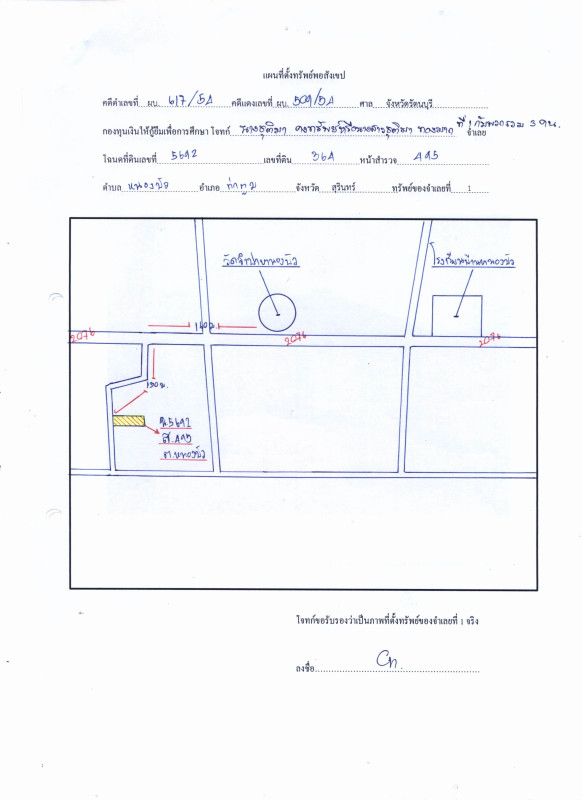 แผนที่ตั้งทรัพย์พอสังเขป
คดีดำเลขที่ ผบ. 617/54 คดีแดงเลขที่ ผบ. 509/54 ศาล จังหวัดรัตนบุรี
กองทุนเงินให้กู้ยืมเพื่อการศึกษา โจทก์ ที่ 1 กับพวกรวม 3 คน จำเลย
โฉนดที่ดินเลขที่ 5692 เลขที่ดิน 364 หน้าสำรวจ 495
ตำบล หนองบัว อำเภอ ท่าตูม จังหวัด สุรินทร์ ทรัพย์ของจำเลยที่ 1
วัดจำปาหนองบัว
โรงเรียนบ้านหนองบัว
140 ม.
2076
2076
2076
130 ม.
น.5692
ส.495
ต.หนองบัว
โจทก์ขอรับรองว่าเป็นภาพที่ตั้งทรัพย์ของจำเลยที่ 1 จริง
ลงชื่อ